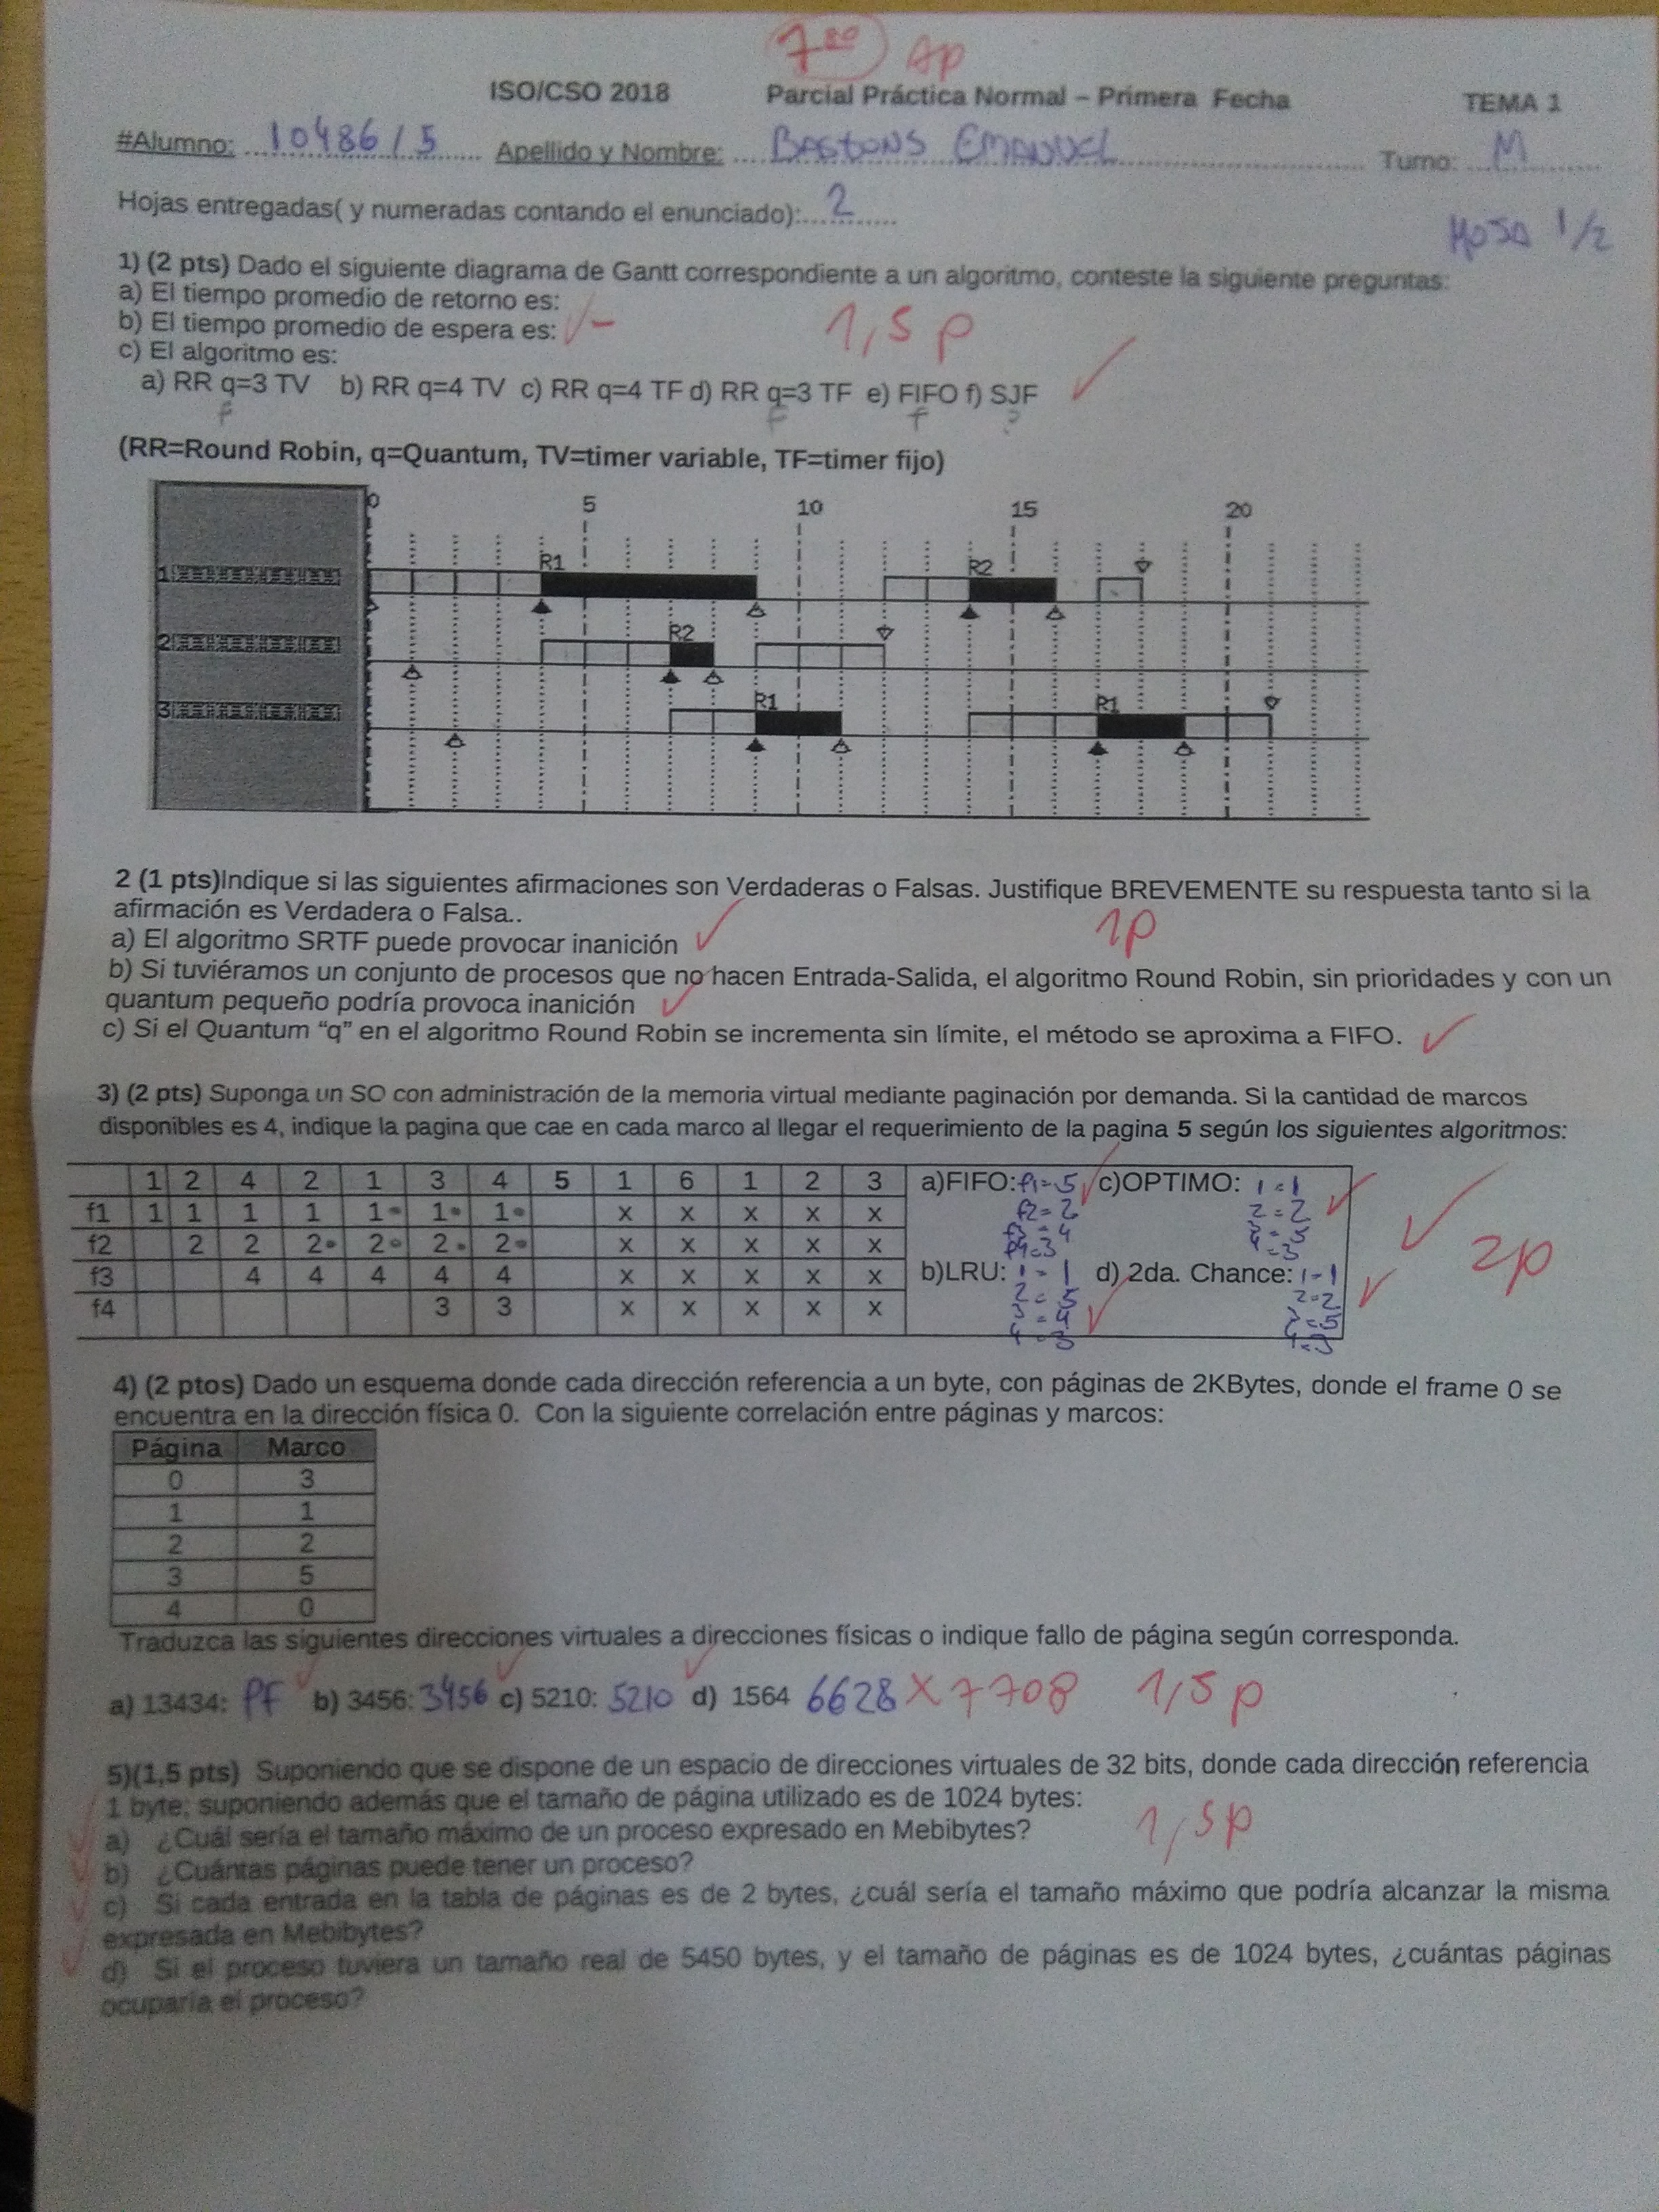 7 80 Ap
ISO/CSO 2018 Parcial Práctica Normal – Primera Fecha TEMA 1
#Alumno: 10486/5 Apellido y Nombre: BASTONS EMANUEL Turno: M
Hojas entregadas( y numeradas contando el enunciado): 2
HOJA 1/2
1) (2 pts) Dado el siguiente diagrama de Gantt correspondiente a un algoritmo, conteste la siguiente preguntas:
a) El tiempo promedio de retorno es:
b) El tiempo promedio de espera es: 1,5 p
c) El algoritmo es:
a) RR q=3 TV b) RR q=4 TV c) RR q=4 TF d) RR q=3 TF e) FIFO f) SJF
f f f ?
(RR=Round Robin, q=Quantum, TV=timer variable, TF=timer fijo)
0 5 10 15 20
1 R1 R2
2 R2
3 R1 R1
2 (1 pts)Indique si las siguientes afirmaciones son Verdaderas o Falsas. Justifique BREVEMENTE su respuesta tanto si la
afirmación es Verdadera o Falsa..
1p
a) El algoritmo SRTF puede provocar inanición
b) Si tuviéramos un conjunto de procesos que no hacen Entrada-Salida, el algoritmo Round Robin, sin prioridades y con un
quantum pequeño podría provoca inanición
c) Si el Quantum “q” en el algoritmo Round Robin se incrementa sin límite, el método se aproxima a FIFO.
3) (2 pts) Suponga un SO con administración de la memoria virtual mediante paginación por demanda. Si la cantidad de marcos
disponibles es 4, indique la pagina que cae en cada marco al llegar el requerimiento de la pagina 5 según los siguientes algoritmos:
1 2 4 2 1 3 4 5 1 6 1 2 3
f1 1 1 1 1 1 1 1 x x x x x
f2 2 2 2 2 2 2 x x x x x
f3 4 4 4 4 4 x x x x x
f4 3 3 x x x x x
a)FIFO: f1=5
f2=2
f3=4
f4=3
c)OPTIMO: 1=1
2=2
3=5
4=3
b)LRU: 1=1
2=5
3=4
4=3
d) 2da. Chance: 1-1
2=2
3=5
4=3
2p
4) (2 ptos) Dado un esquema donde cada dirección referencia a un byte, con páginas de 2KBytes, donde el frame 0 se
encuentra en la dirección física 0. Con la siguiente correlación entre páginas y marcos:
Página Marco
0 3
1 1
2 2
3 5
4 0
Traduzca las siguientes direcciones virtuales a direcciones físicas o indique fallo de página según corresponda.
a) 13434: PF b) 3456: 3456 c) 5210: 5210 d) 1564 6628 X 7708 1,5 p
5)(1,5 pts) Suponiendo que se dispone de un espacio de direcciones virtuales de 32 bits, donde cada dirección referencia
1 byte; suponiendo además que el tamaño de página utilizado es de 1024 bytes:
1,5p
a) ¿Cuál sería el tamaño máximo de un proceso expresado en Mebibytes?
b) ¿Cuántas páginas puede tener un proceso?
c) Si cada entrada en la tabla de páginas es de 2 bytes, ¿cuál sería el tamaño máximo que podría alcanzar la misma
expresada en Mebibytes?
d) Si el proceso tuviera un tamaño real de 5450 bytes, y el tamaño de páginas es de 1024 bytes, ¿cuántas páginas
ocuparía el proceso?